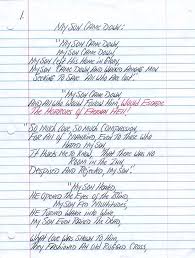 1.
My Son Came Down!
"My Son Came Down,
My Son Came Down,
My Son Left His Home in Glory,
My Son Came Down and Walked Among Men
Seeking to Save All Who Are Lost".
"My Son Came Down,
And All Who Would Follow Him, Would Escape
The Horrors of Eternal Hell!
"So Much Love, So Much Compassion,
For All of Mankind, Even to Those Who
Hated My Son,
It Hurts Me to Know, That There Was No
Room in the Inn,
Despised and Rejected My Son!
"My Son Healed,
He Opened the Eyes of the Blind,
My Son Fed Multitudes,
He Turned Water into Wine
My Son Even Raised the Dead,
What Love Was Shown to Him,
They Fashioned An Old Rugged Cross,